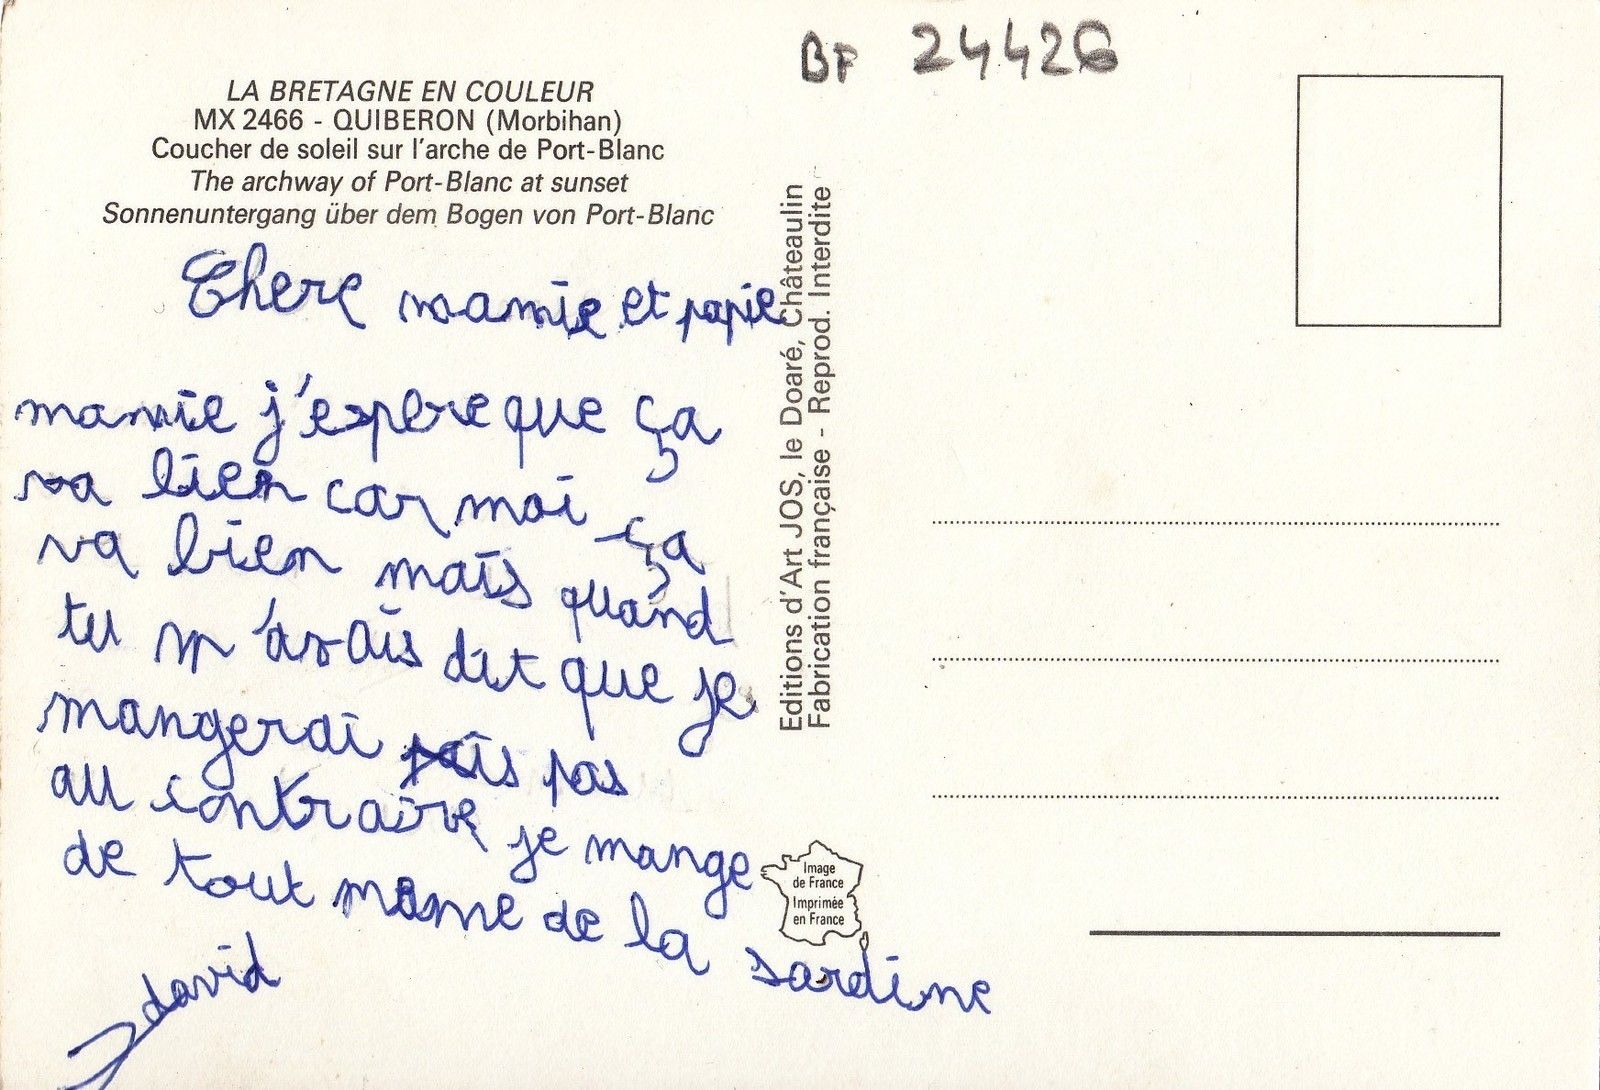 BF 24426
LA BRETAGNE EN COULEUR
MX 2466 - QUIBERON (Morbihan)
Coucher de soleil sur l'arche de Port-Blanc
The archway of Port-Blanc at sunset
Sonnenuntergang über dem Bogen von Port-Blanc
Chere mamie et papie
mamie j'espere que ça
va bien car moi ça
va bien mais quand
tu m'avais dit que je
mangerai pas
au contraire je mange
de tout mame de la sardine
david
Editions d'Art JOS, le Doaré, Châteaulin
Fabrication française - Reprod. Interdite
Image
de France
Imprimée
en France